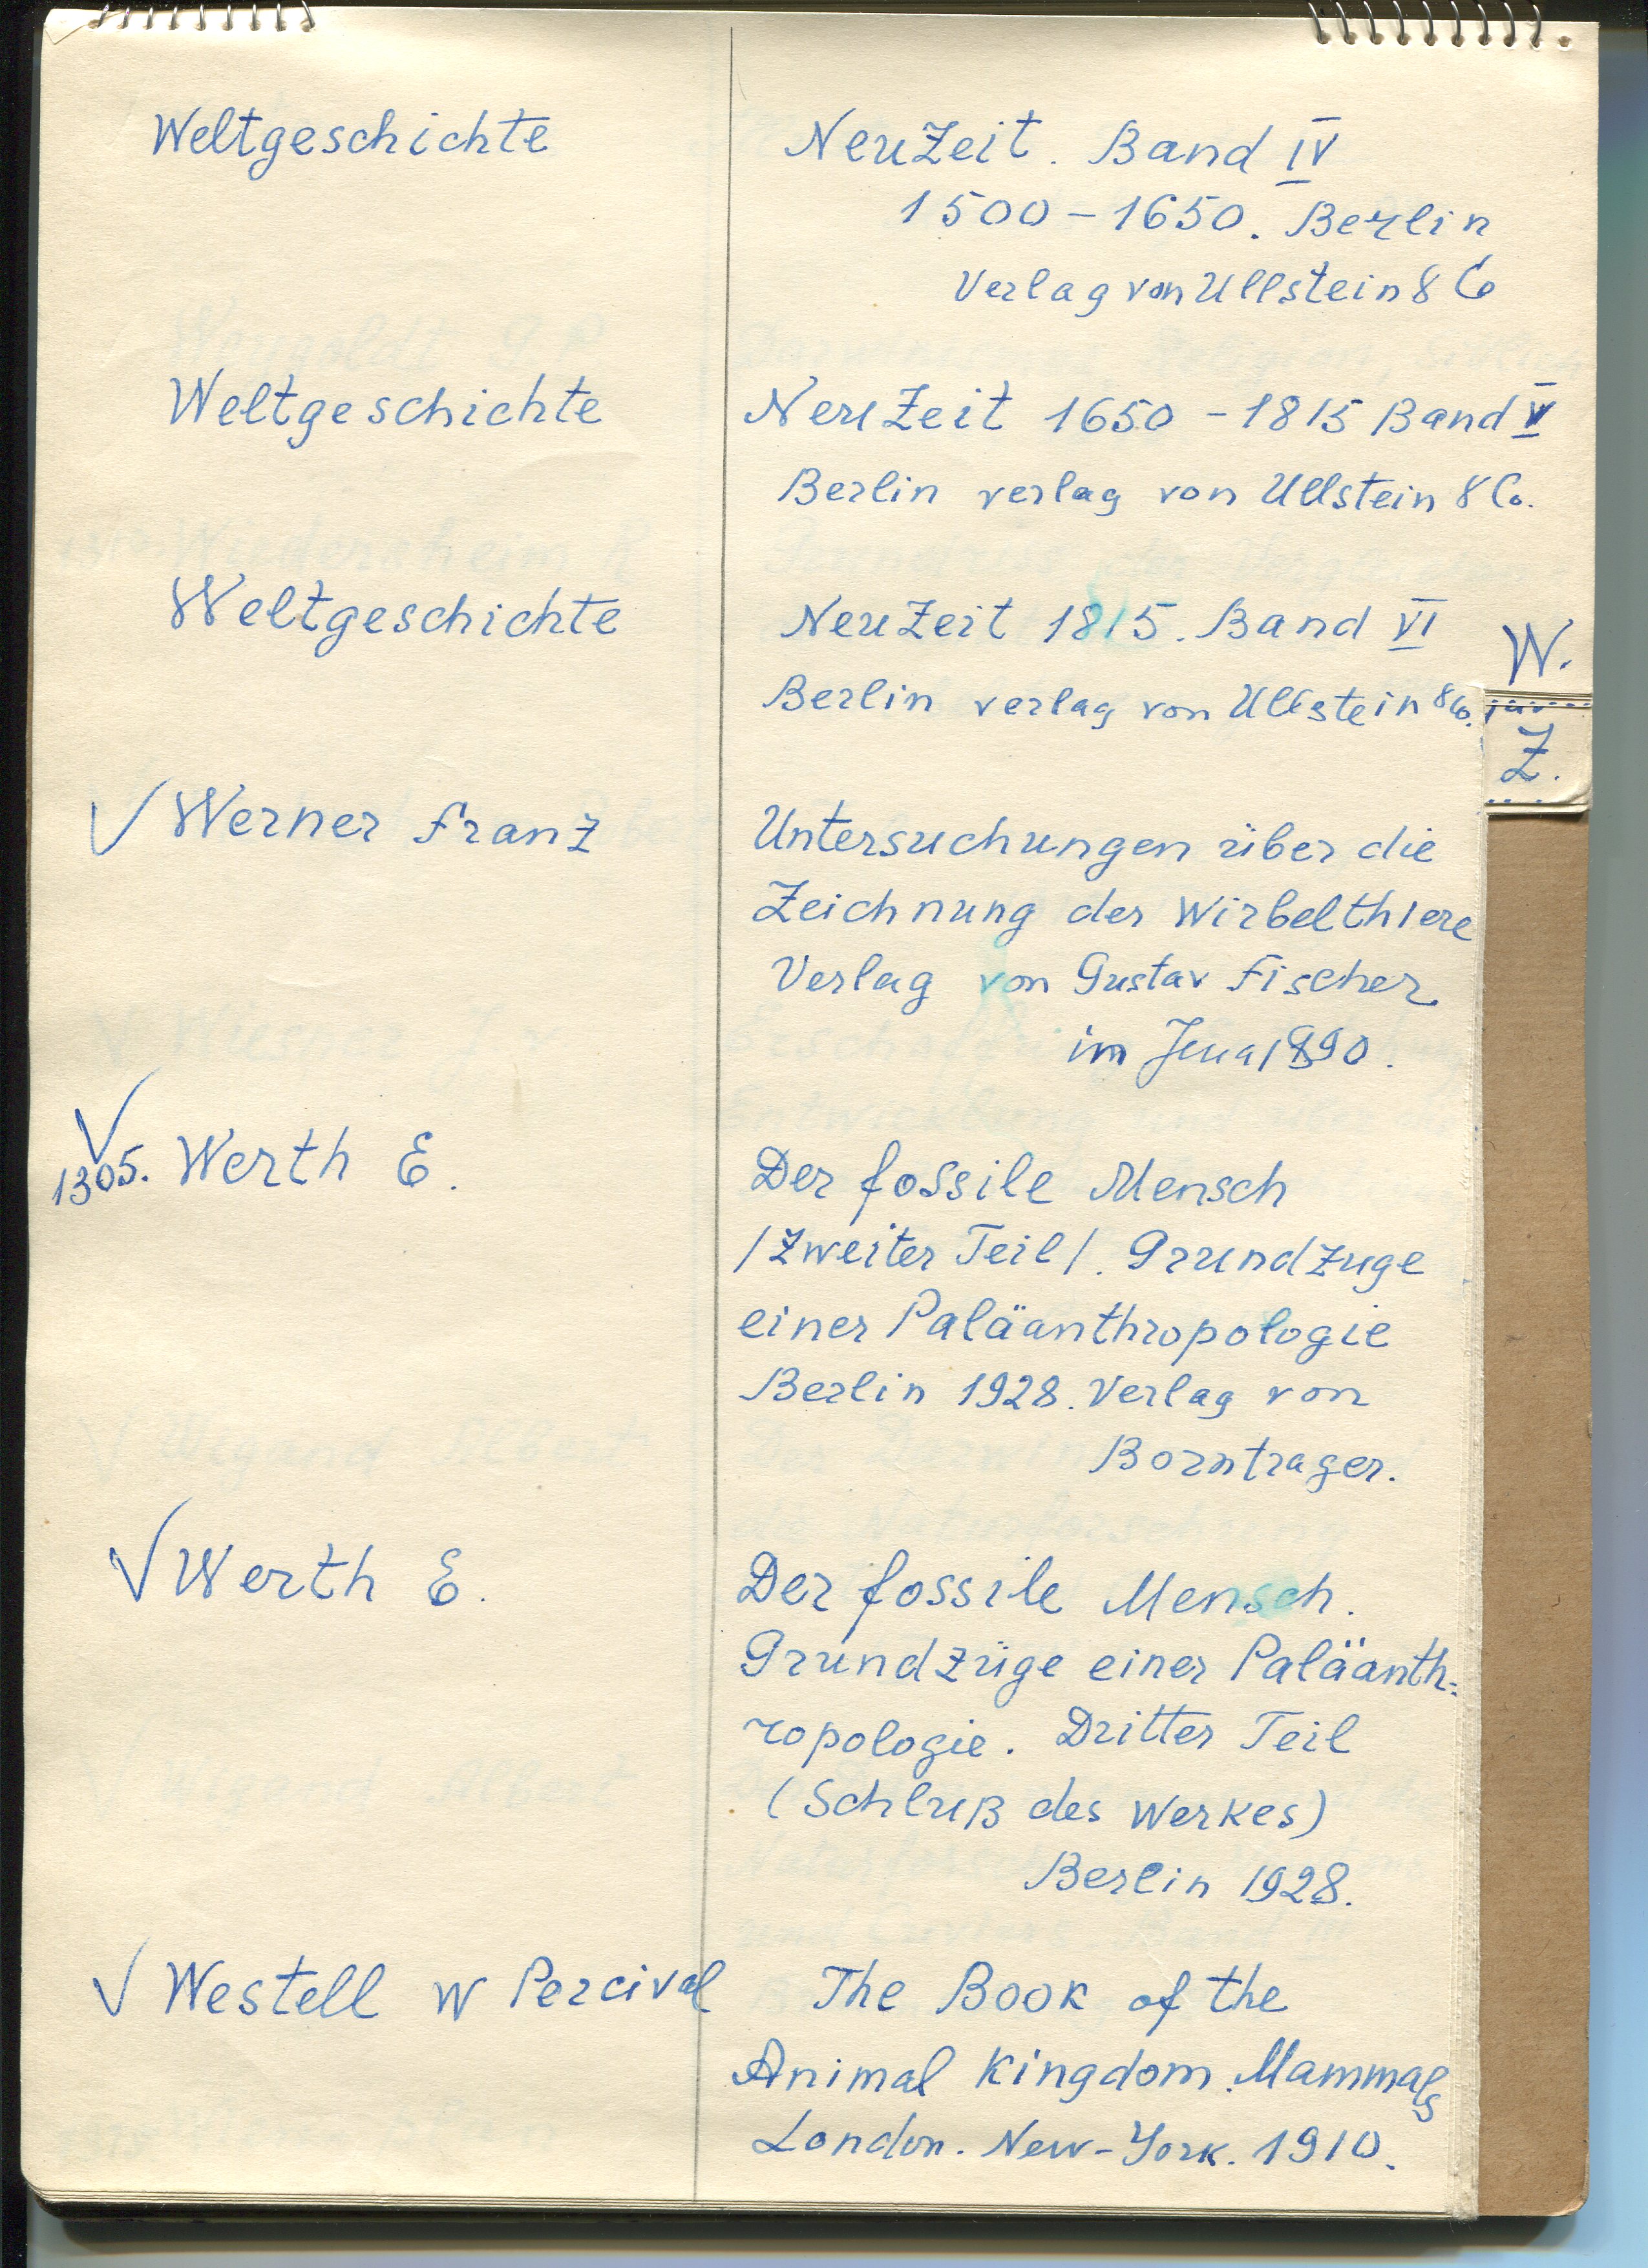 Weltgeschichte
NeuZeit. Band IV
1500-1650. Berlin
Verlag von Ullstein & Co
Weltgeschichte
NeuZeit 1650-1815 Band V
Berlin verlag von Ullstein & Co.
Weltgeschichte
NeuZeit 1815. Band VI
Berlin verlag von Ullstein & Co.
W.
Z.
√ Werner Franz
Untersuchungen über die
Zeichnung der Wirbelthiere
Verlag von Gustav Fischer
im Jena 1890.
√
1305. Werth E.
Der fossile Mensch
/Zweiter Teil/. Grundzuge
einer Paläanthropologie
Berlin 1928. Verlag von
Borntrager.
√ Werth E.
Der fossile Mensch.
Grundzüge einer Paläanth=
ropologie. Dritter Teil
(Schluß des Werkes)
Berlin 1928.
√ Westell W Percival
The Book of the
Animal Kingdom. Mammals
London. New-York. 1910.